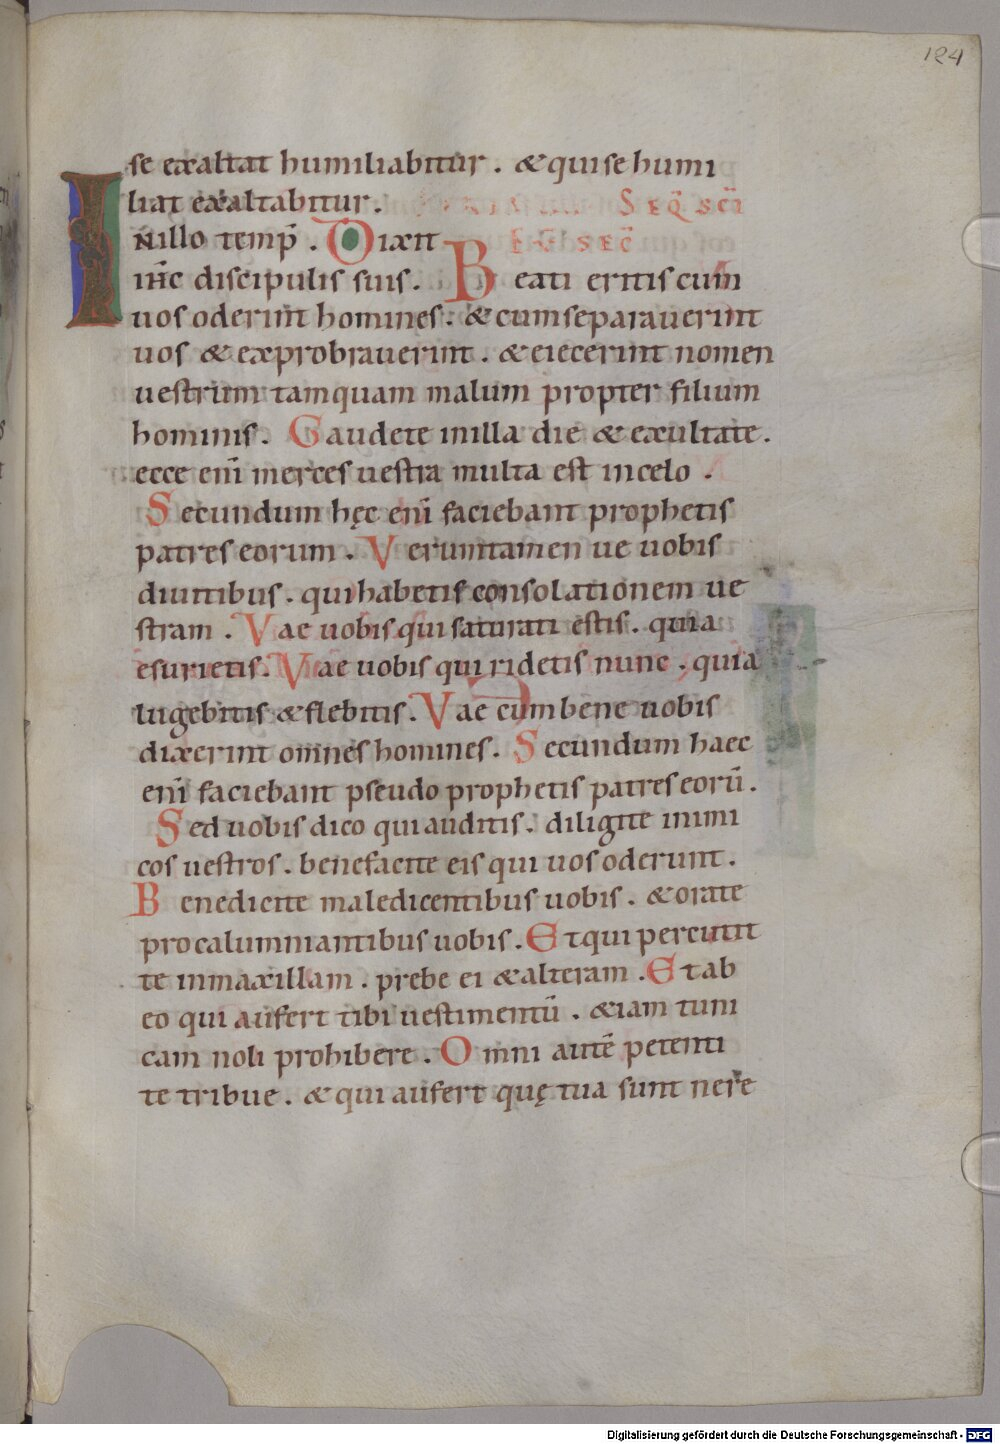 124
se exaltat humiliabitur. & qui se humi
liat exaltabitur. SEQ SCI
IN illo temp̄. Dixit EVG SEC̄
ihc̄ discipulis suis. Beati eritis cum
uos oderint homines. & cum separauerint
uos & exprobrauerint. & eiecerint nomen
uestrum tamquam malum propter filium
hominis. Gaudete in illa die & exultate.
ecce enī merces uestra multa est in celo.
Secundum hęc enī faciebant prophetis
patres eorum. Veruntamen ue uobis
diuitibus. qui habetis consolationem ue
stram. Vae uobis qui saturati estis. quia
esurietis. Vae uobis qui ridetis nunc. quia
lugebitis & flebitis. Vae cum bene uobis
dixerint omnes homines. Secundum haec
enī faciebant pseudo prophetis patres eorū.
Sed uobis dico qui auditis. diligite inimi
cos uestros. benefacite eis qui uos oderunt.
Benedicite maledicentibus uobis. & orate
pro calumniantibus uobis. Et qui percutit
te in maxillam. prebe ei & alteram. Et ab
eo qui aufert tibi uestimentū. & iam tuni
cam noli prohibere. Omni autē petenti
te tribue. & qui aufert quę tua sunt ne re
Digitalisierung gefördert durch die Deutsche Forschungsgemeinschaft - DFG